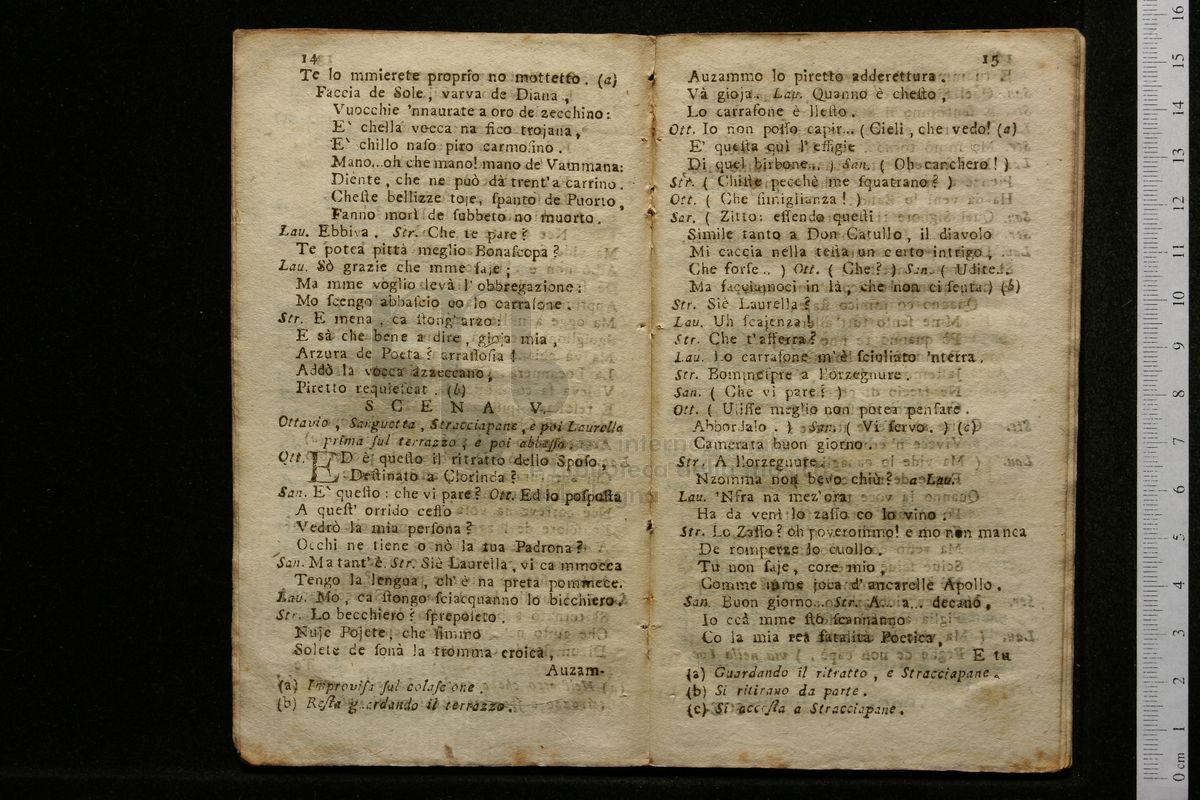 14
Te lo mmierete proprio no mottetto. (a)
Faccia de Sole, varva de Diana,
Vuocchie 'nnaurate a oro de zecchino:
E' chella vocca na fico trojana,
E' chillo naso piro carmosino.
Mano...oh che mano! mano de Vammana:
Diente, che ne può dà trent'a carrino.
Cheste bellizze toje, spanto de Puorto,
Fanno morì de subbeto no muorto.
Lau. Ebbiva. Str. Che te pare?
Te potea pittà meglio Bonascopa?
Lau. Sò grazie che mme faje;
Ma mme voglio levà l'obbregazione:
Mo scengo abbascio co lo carrafone.
Str. E mena, ca stong'arzo:
E sà che bene a dire, gioja mia,
Arzura de Poeta? arraflosia!
Addò la vocca azzeccano,
Piretto requiescat. (b)
SCENA V.
Ottavio, Sanguetta, Stracciapane, e poi Laurella
prima sul terrazzo, e poi abbasso.
Ott. ED è questo il ritratto dello Sposo,
Destinato a Clorinda?
San. E' questo: che vi pare? Ott. Ed io posposta
A quest'orrido ceffo
Vedrò la mia persona?
Occhi ne tiene o nò la tua Padrona?
San. Ma tant'è. Str. Siè Laurella, vi ca mmocca
Tengo la lengua, ch'è na preta pommece.
Lau. Mo, ca stongo sciacquanno lo bicchiero.
Str. Lo becchiero? sprepoleto.
Nuje Pojete, che simmo
Solete de sonà la tromma eroica,
Auzam-
(a) Improvisa sul colascione.
(b) Resta guardando il terrazzo.
15
Auzammo lo piretto adderettura.
Và gioja. Lau. Quanno è chesto,
Lo carrafone è llesto.
Ott. Io non posso capir... (Cieli, che vedo! (a)
E' questa quì l'effigie
Di quel birbone... ) San. ( Oh canchero! )
Str. ( Chiste pecchè me squatrano? )
Ott. ( Che simiglianza! )
San. ( Zitto: essendo questi
Simile tanto a Don Catullo, il diavolo
Mi caccia nella testa un certo intrigo,
Che forse.. ) Ott. ( Che? ) San. ( Udite...
Ma facciamoci in là, che non ci senta.) (b)
Str. Siè Laurella?
Lau. Uh scajenza!
Str. Che t'afferra?
Lau. Lo carrafone m'è sciuliato 'nterra.
Str. Bommespre a l'orzegnure.
San. ( Che vi pare? )
Ott. ( Ulisse meglio non potea pensare.
Abbordalo. ) San. ( Vi servo. ) (c)
Camerata buon giorno.
Str. A l'orzegnure.
Nzomma non bevo chiù? a Lau.
Lau. 'Nfra na mez'ora
Ha da venì lo zaffo co lo vino.
Str. Lo Zaffo? oh poverommo! e mo non manca
De romperze lo cuollo.
Tu non saje, core mio,
Comme mme joca d'ancarelle Apollo.
San. Buon giorno... Str. A... a... decanò,
Io ccà mme stò scannanno
Co la mia rea fatalità Poetica,
E tu
(a) Guardando il ritratto, e Stracciapane.
(b) Si ritirano da parte.
(c) Si accosta a Stracciapane.
0 cm 1 2 3 4 5 6 7 8 9 10 11 12 13 14 15 16